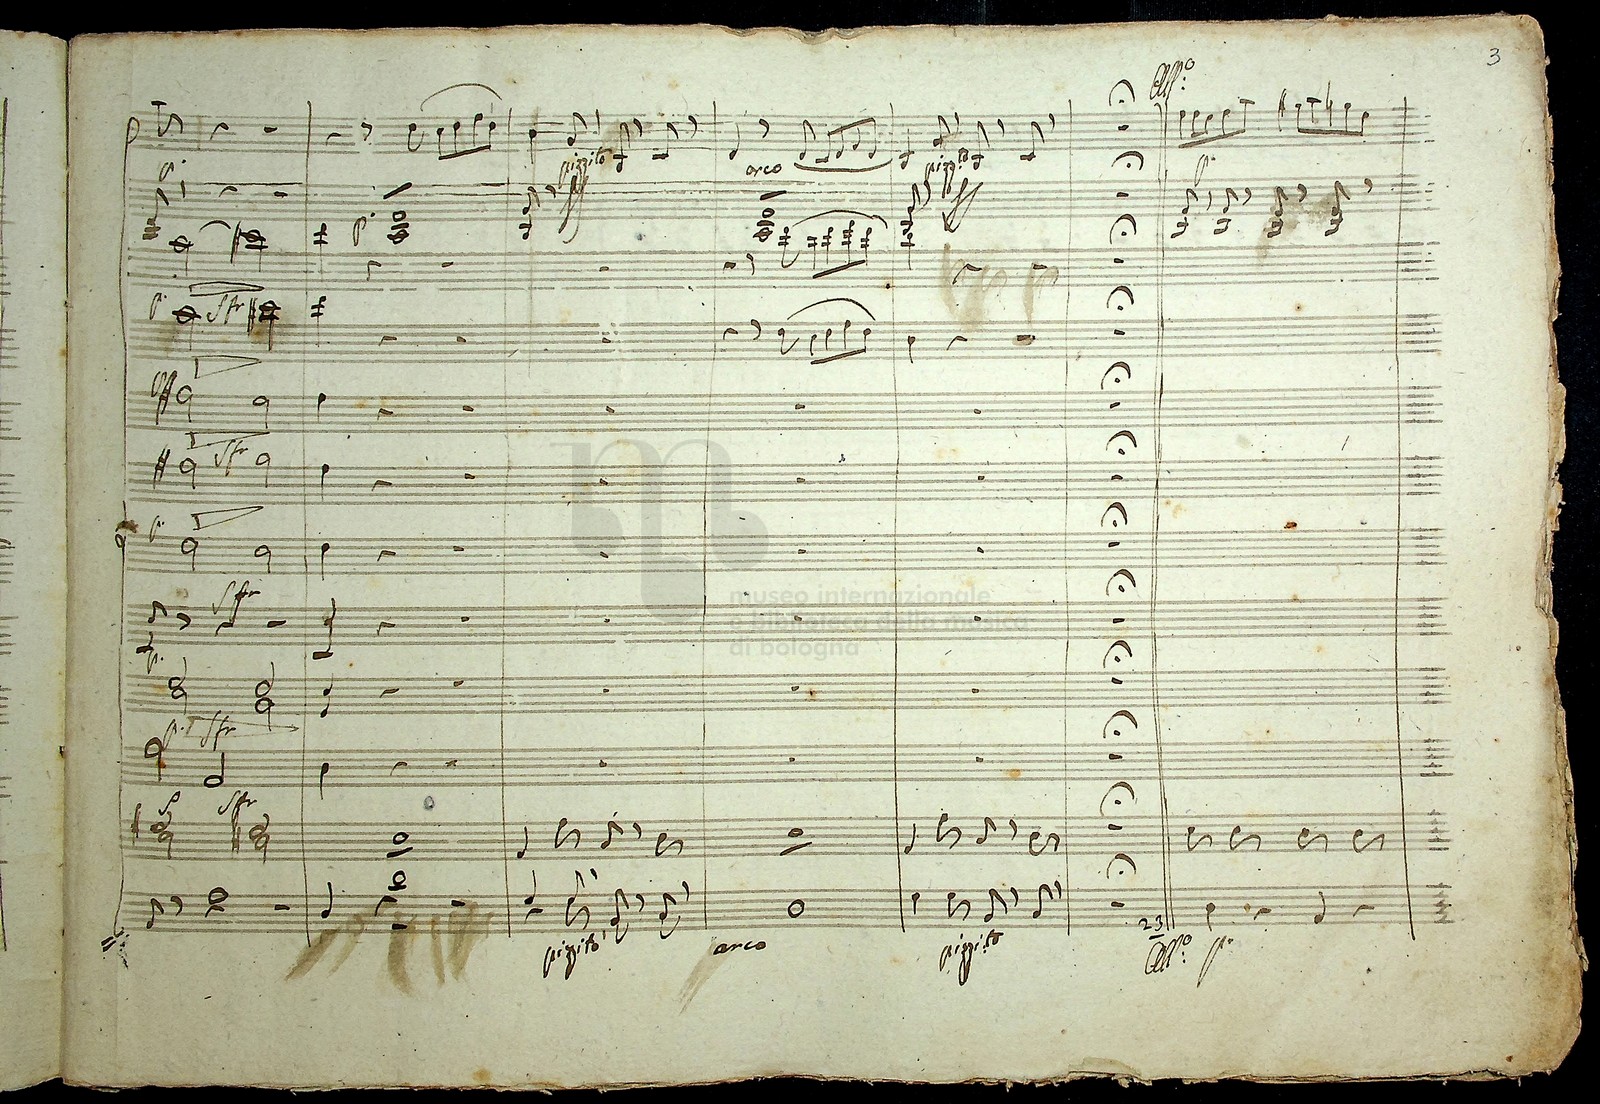 3
All.o
p.
pizzito
arco
pizz.to
p.
p.
p. sfr
sfr
p.
sfr
p.
p. sfr
p sfr
pizzito arco pizzito 23
All.o p.
museo internazionale
e biblioteca della musica
di bologna